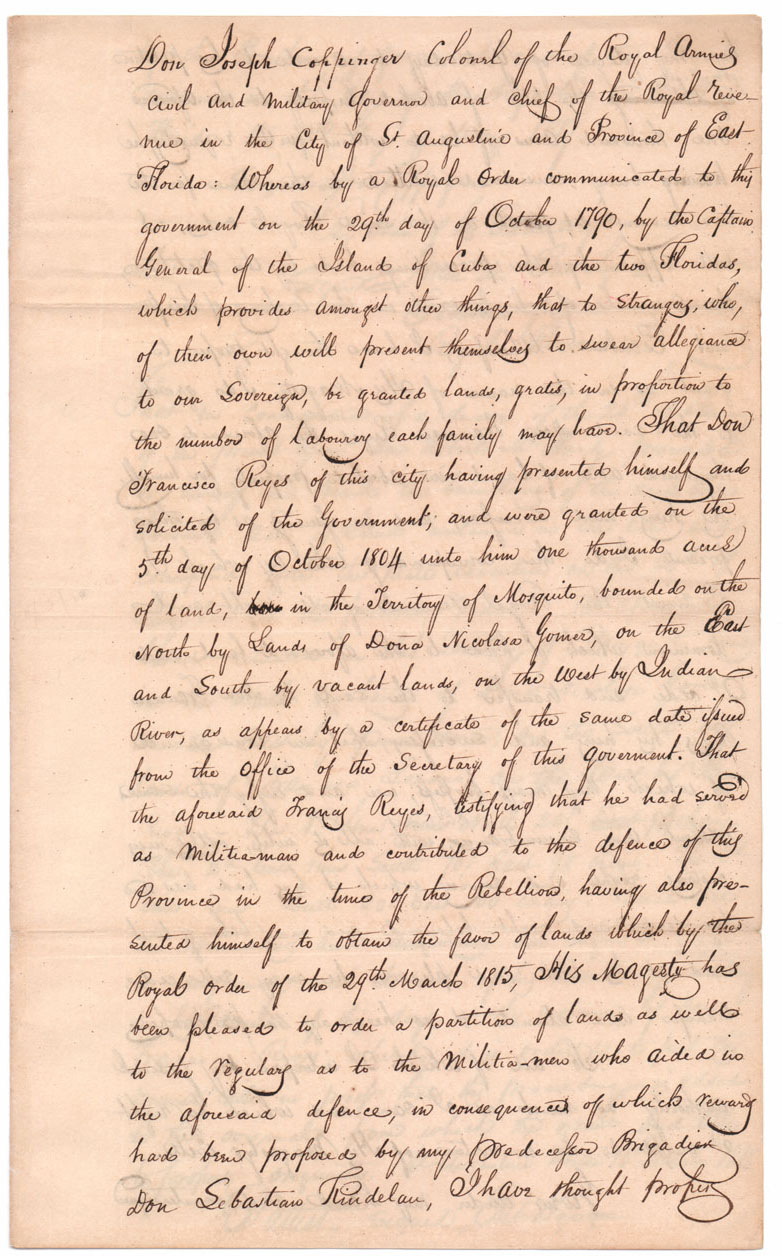 Don Joseph Coppinger Colonel of the Royal Armies
civil and military Governor and chief of the Royal reve-
nue in the City of St. Augustine and Province of East
Florida: Whereas by a Royal Order communicated to this
government on the 29th day of October 1790, by the Captain
General of the Island of Cuba and the two Floridas,
which provides amongst other things, that to Strangers, who,
of their own will present themselves to swear allegiance
to our Sovereign, be granted lands, gratis, in proportion to
the number of labourers each family may have. That Don
Francisco Reyes of this city having presented himself and
solicited of the Government, and were granted on the
5th day of October 1804 unto him one thousand acres
of land, in the Territory of Mosquito, bounded on the
North by Lands of Doña Nicolasa Gomer, on the East
and South by vacant lands, on the West by Indian
River, as appears by a certificate of the same date issued
from the Office of the Secretary of this goverment. That
the aforesaid Francis Reyes, testifying that he had served
as Militia-man and contributed to the defence of this
Province in the time of the Rebellion, having also pre-
sented himself to obtain the favor of lands which by the
Royal order of the 29th March 1815, His Magesty has
been pleased to order a partition of lands as well
to the regulars as to the Militia-men who aided in
the aforesaid defence, in consequence of which reward
had been proposed by my predecessor Brigadier
Don Sebastian Kindelan, I have thought proper